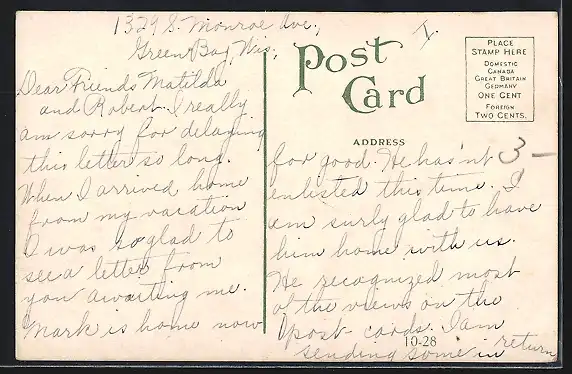 1329 S. Monroe Ave.,
Green Bay, Wis.
Dear Friends Matilda
and Robert. I really
am sorry for delaying
this letter so long.
When I arrived home
from my vacation
I was so glad to
see a letter from
you awaiting me.
Mark is home now
Post
Card
I
PLACE
STAMP HERE
DOMESTIC
CANADA
GREAT BRITAIN
GERMANY
ONE CENT
FOREIGN
TWO CENTS.
ADDRESS
3 –
for good. He has'nt
enlisted this time. I
am surly glad to have
him home with us.
He recognized most
of the views on the
post-cards. I am
10-28
sending some in return